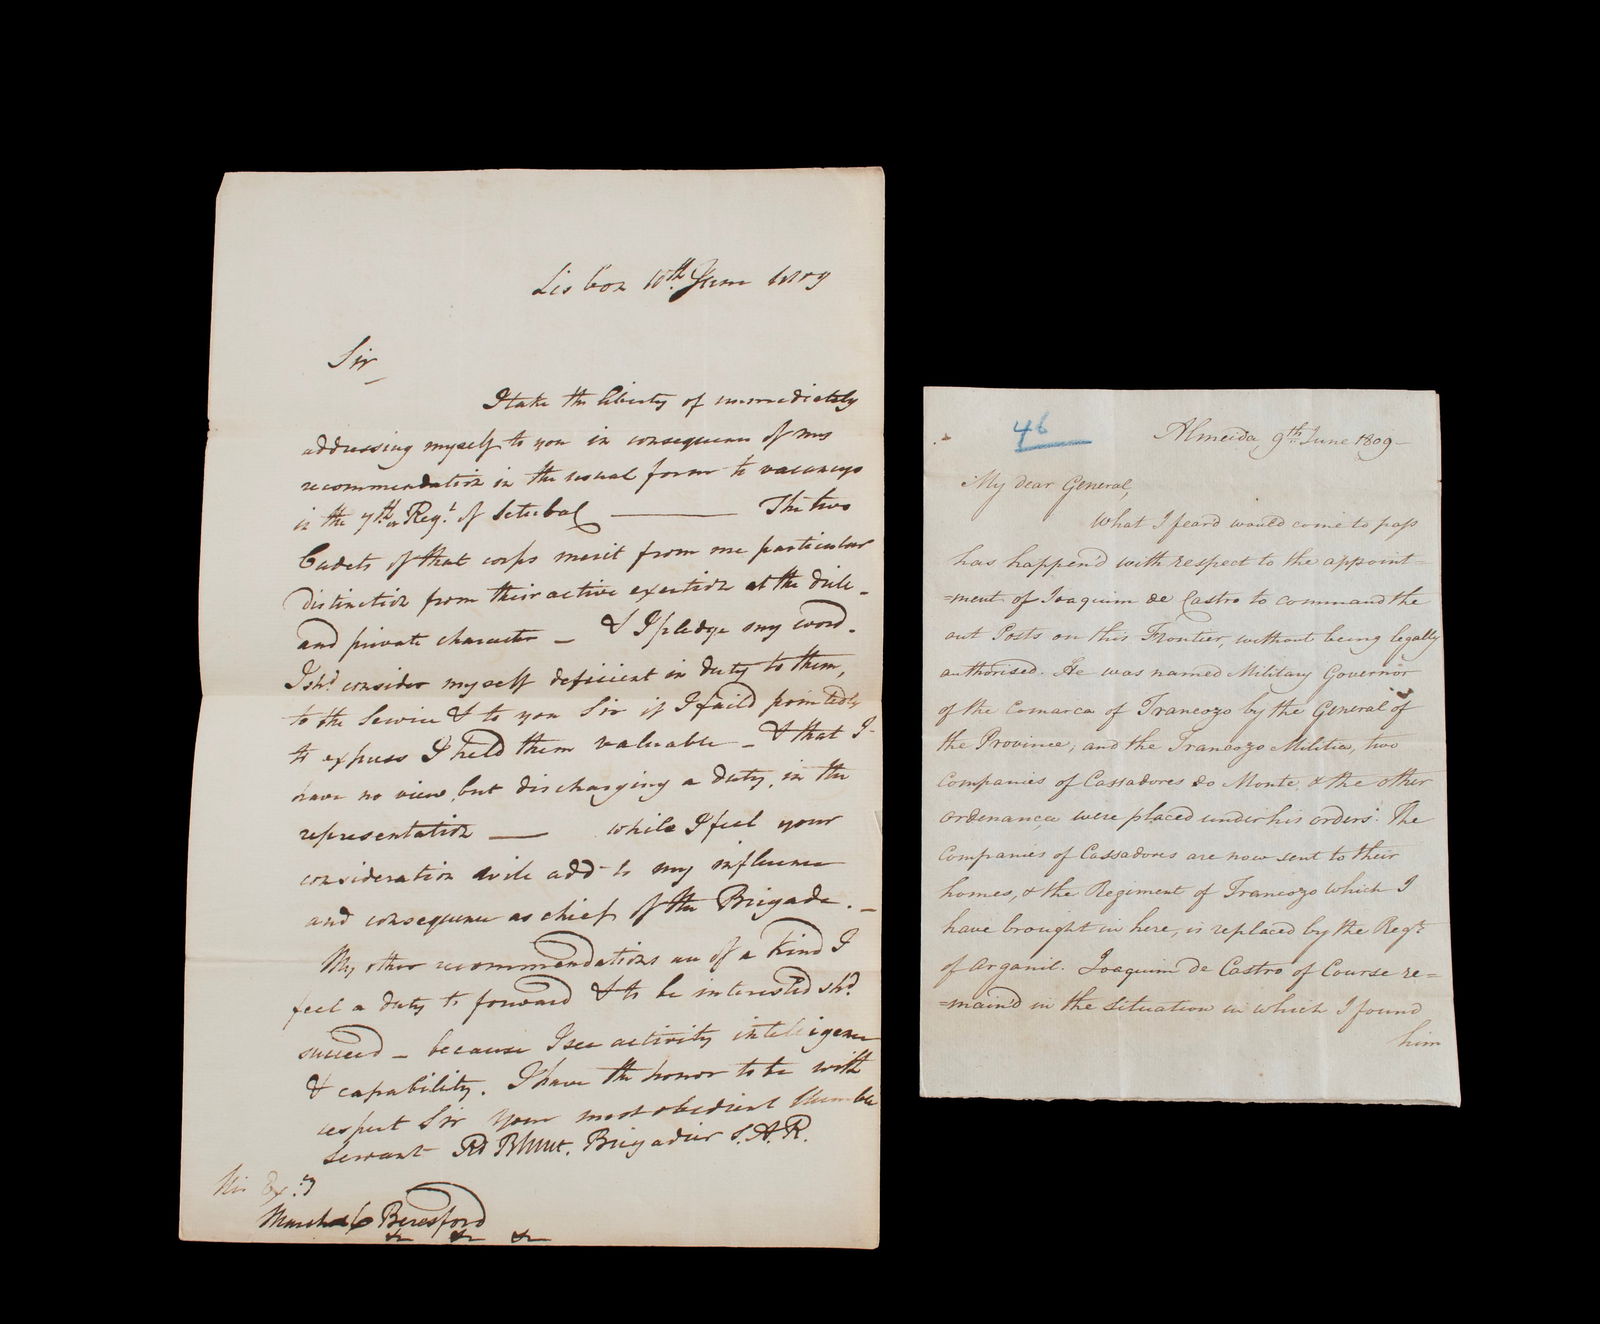 Lisbon 10th June 1809
Sir
I take the liberty of immediately
addressing myself to you in consequence of my
recommendation in the usual form to vacancys
in the 7th Regt. of Setubal —— The two
Cadets of that corps merit from me particular
distinction from their active exertion at the drile
and private character — & I pledge my word.
I shd. consider myself deficient in duty to them,
to the Service & to you Sir if I faild pointedly
to express I held them valuable — & that I
have no view but discharging a duty, in the
representation —— while I feel your
consideration wile add to my influence
and consequence as chief of the Brigade. —
My other recommendations are of a kind I
feel a duty to forward & to be interested shd.
succeed — because I see activity intelligence
& capability. I have the honor to be with
respect Sir your most obedient Humble
Servant Rd Blunt. Brigadier S.A.R.
His Exy
Marshal Beresford
&c &c &c
46
Almeida 9th. June 1809—
My dear General,
What I fear'd would come to pass
has happen'd with respect to the appoint=
=ment of Joaquim de Castro to command the
out Posts on this Frontier, without being legally
authorised. He was named Military Governor
of the Comarca of Trancozo by the General of
the Province, and the Trancozo Militia, two
Companies of Cassadores do Monte, & the other
Ordenança were placed under his orders. The
Companies of Cassadores are now sent to their
homes, & the Regiment of Trancozo which I
have brought in here, is replaced by the Regt.
of Arganil. Joaquim de Castro of Course re=
=main'd in the Situation in which I found
him